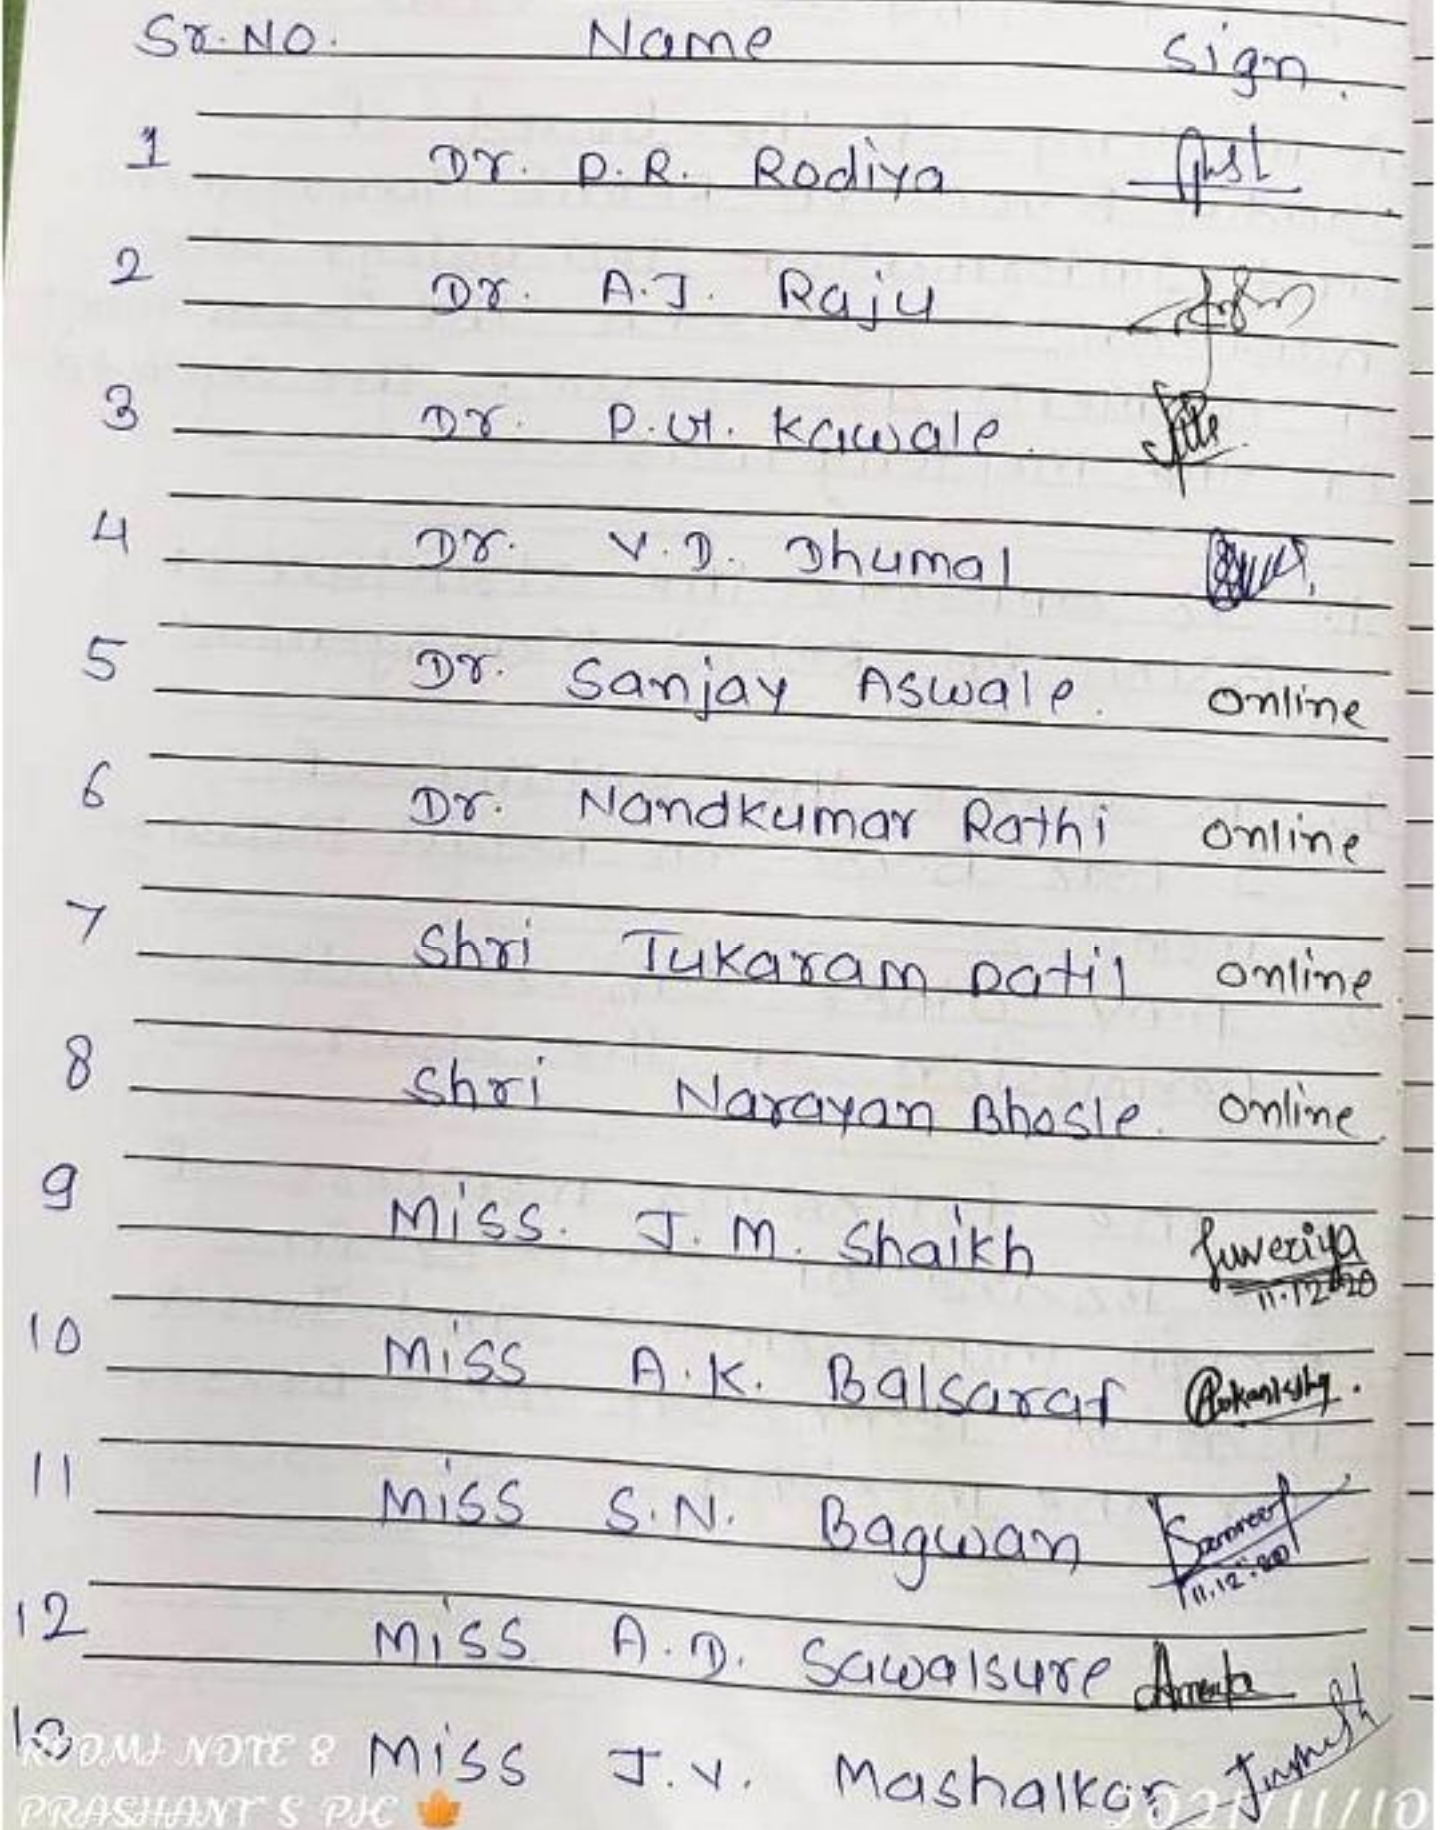 Sr. No. Name Sign.
1 Dr. P.R. Rodiya
2 Dr. A.J. Raju
3 Dr. P.U. Kawale.
4 Dr. V.D. Dhumal
5 Dr. Sanjay Aswale. Online
6 Dr. Nandkumar Rathi Online
7 Shri Tukaram Patil Online
8 Shri Narayan Bhosle. Online
9 Miss. J.M. Shaikh Juveriya
11.12.2020
10 Miss A.K. Balsaraf
11 Miss S.N. Bagwan
11.12.
12 Miss A.D. Sawalsure
13 Miss J.V. Mashalkar
REDMI NOTE 8
PRASHANT'S PIC 2021/11/10